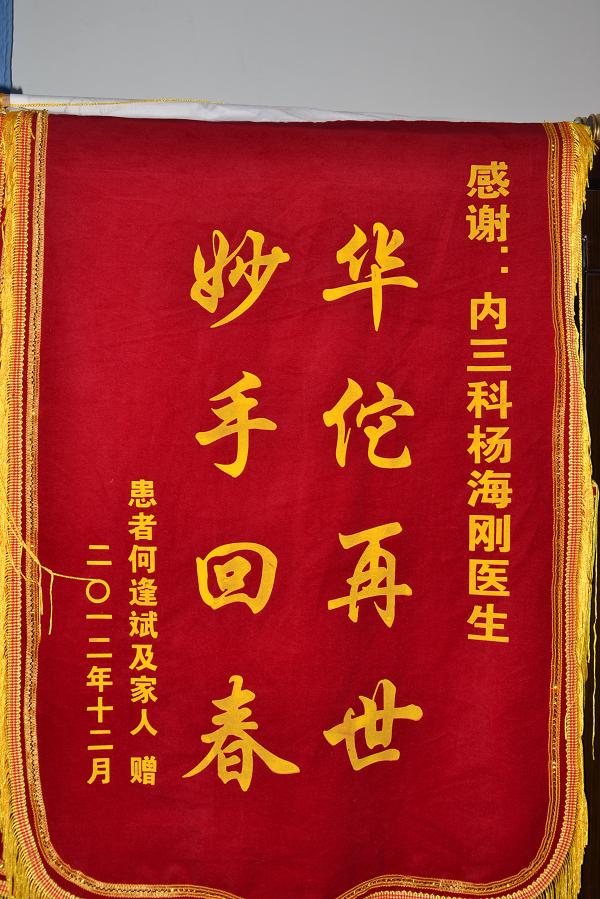 感谢：内三科杨海刚医生
华佗再世
妙手回春
患者何逢斌及家人 赠
二〇一二年十二月